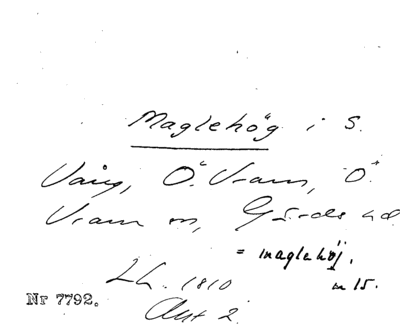 Maglehög i S.
Vång, Ö. Vram, Ö.
Vram sn, Gärds hd
= maglehöj.
Lh. 1810 m 15.
Akt 2
Nr 7792.